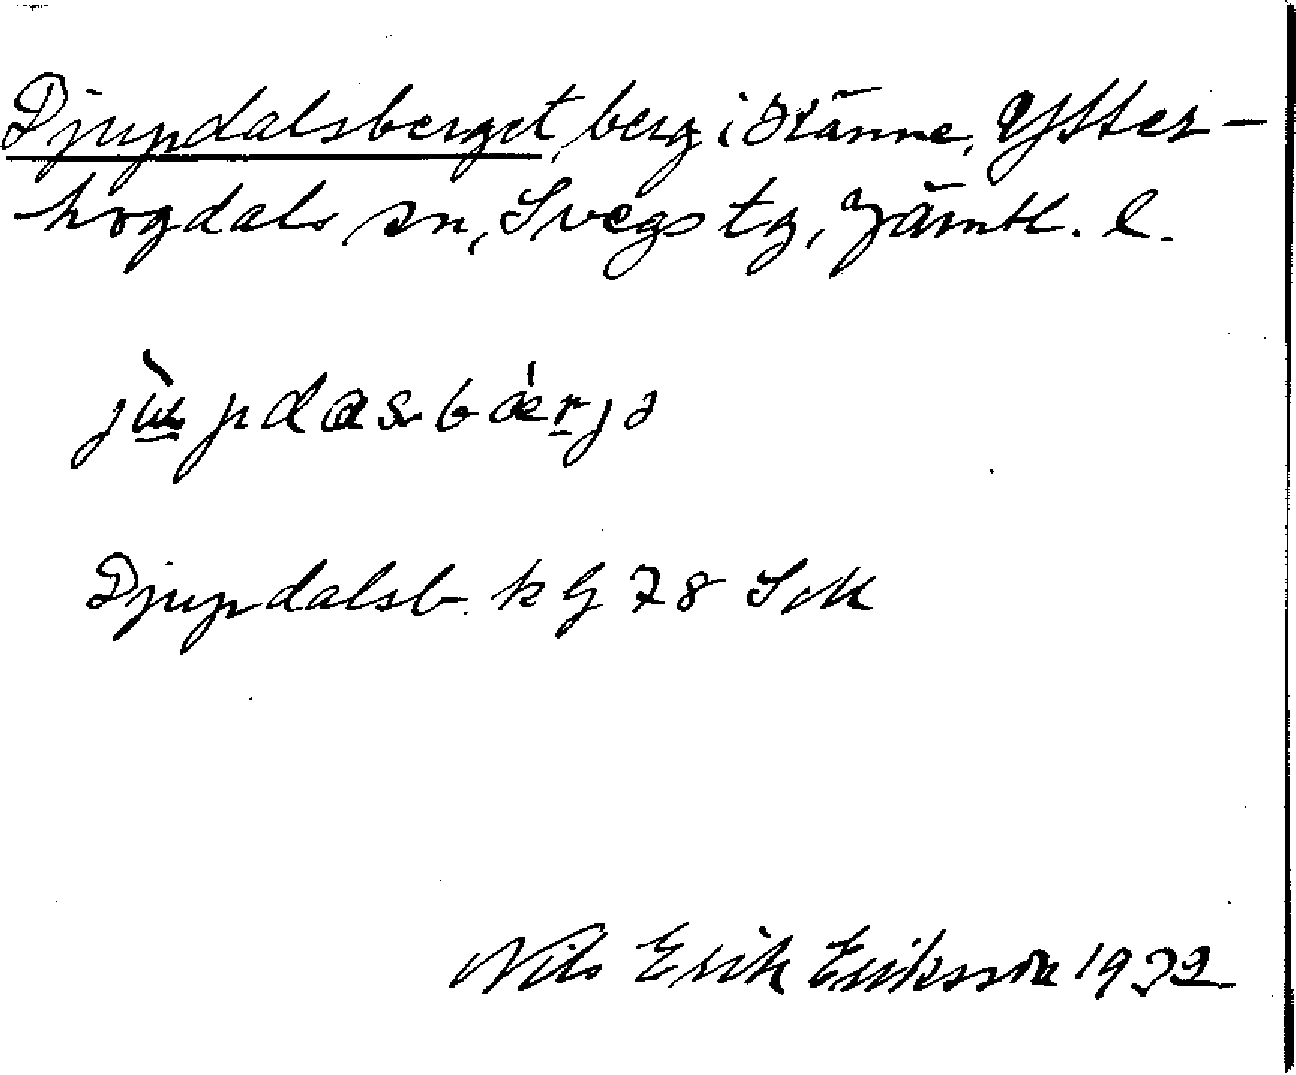 Djupdalsberget, berg i Stänne, Ytter-
hogdals sn, Svegs tg, Jämtl. l.
jùpdasbǽrjə
Djupdalsb. k G 78 Svk
Nils Erik Eriksson 1932